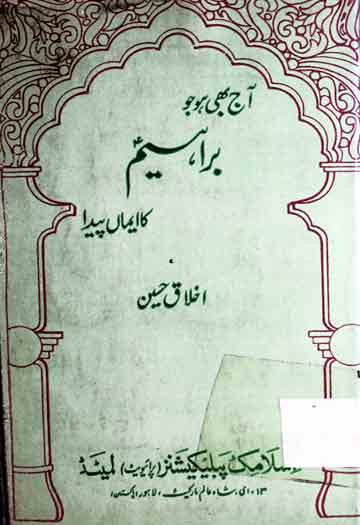 آج بھی ہو جو
براہیمؑ
کا ایماں پیدا
اخلاق حسین
اسلامک پبلیکیشنز (پرائیویٹ) لمیٹڈ
۱۳۔ ای، شاہ عالم مارکیٹ، لاہور (پاکستان)